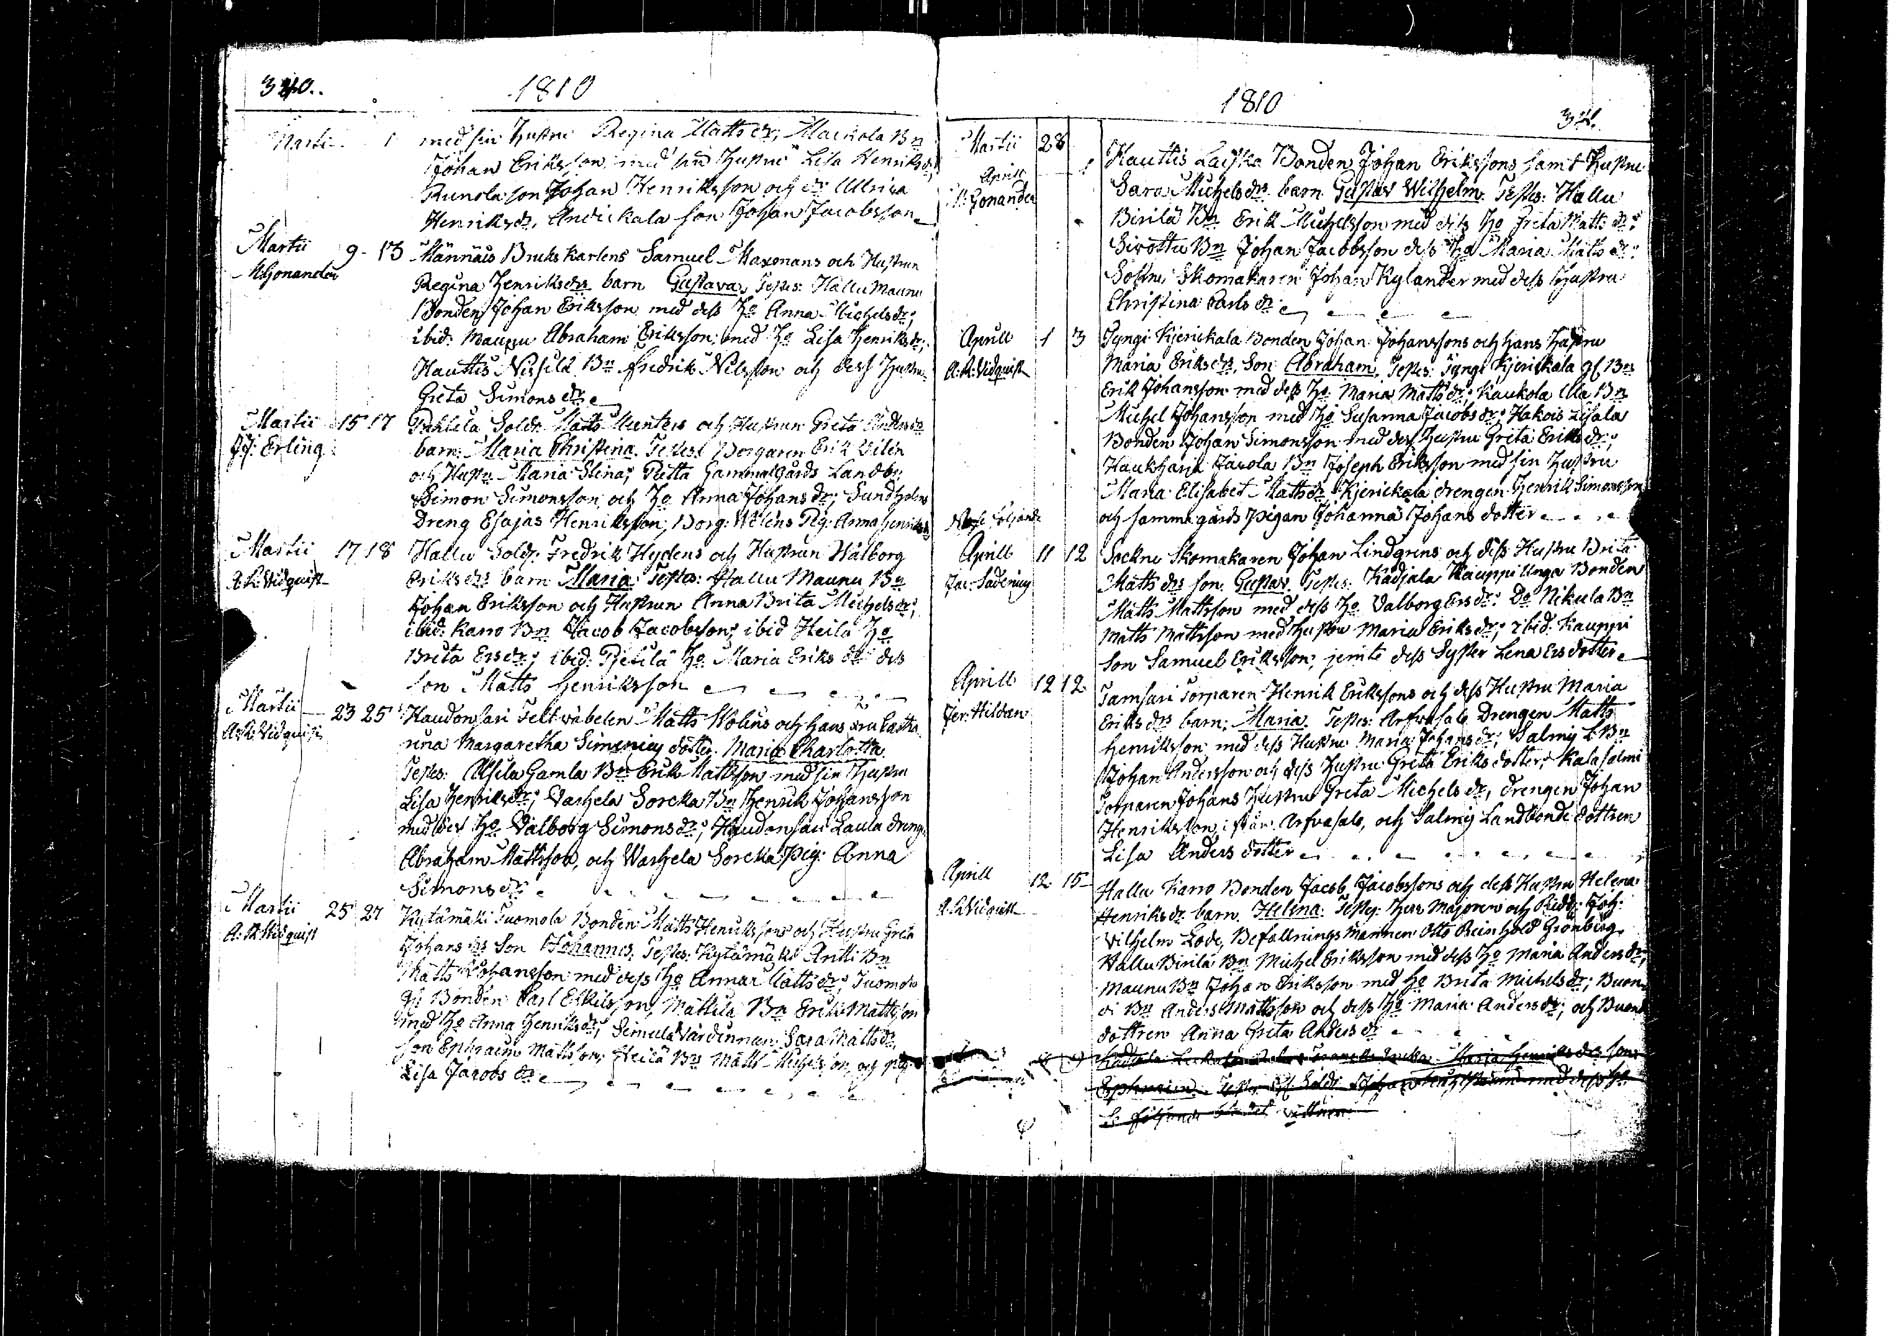 340.
1810
Martii 1 med sin Hustru Regina Matts dr, Maekola Bn
Johan Eriksson med sin Hustru Lisa Henriks dr
Runola son Johan Henriksson och dr Ulrica
Henriks dr, Andickala son Johan Jacobsson
Martii 9 - 13 Männäis Bruks karlens Samuel Maxonans och Hustrun
M. Gonander Regina Henriks drs barn Gustava, Testes: Hallu Maunu
Bonden Johan Eriksson med dess Ho Anna Michels dr;
ibid: Maunu Abraham Eriksson med Ho Lisa Henriks dr;
Hauttis Nissilä Bn Fredrik Nilsson och dess Hustru
Greta Simons dr
Martii 15 17 Pahlila Soldt Matts Munters och Hustrun Greta Anders drs
J: Erling barn: Maria Christina. Testes: Borgaren Erik Wilén
och Hustru Maria Stina; Putta Gammalgårds Landbo
Simon Simonsson och Ho Anna Johans dr; Sundholms
Dreng Esajas Henriksson, Borg: Wilens Pig: Anna Henriks dr
Martii 17 18 Hallu Sold: Fredrik Hydens och Hustrun Walborg
A. R. Widquist Eriks drs barn Maria Testes: Hallu Maunu Bn
Johan Eriksson och Hustrun Anna Brita Michels dr;
ibid. Karro Bn Jacob Jacobsson; ibid Heilä Ho
Brita Ers dr; ibid: Pietilä Ho Maria Eriks dr dess
son Matts Henriksson
Martii 23 25 Haudonsari Feltwäbelen Matts Wolins och hans Fru Catha
A. R. Widquist rina Margaretha Simenius dotter Maria Charlotta
Testes: Ylsila Gamla Bn Erik Mattsson med sin Hustru
Lisa Henriks dr; Warhela Sorcka Bn Henrik Johansson
med dess Ho Walborg Simons dr; Haudonsari Laula dreng
Abraham Mattsson, och Warhela Sorcka Pig: Anna
Simons dr
Martii 25 27 Kytämäki Tuomola Bonden Matts Henriksson och Hustru Greta
A. R. Widquist Johans drs Son Johannes, Testes: Kytämäki Antti Bn
Matts Johansson med dess Ho Anna Matts dr; Tuomola
gl: Bonden Carl Eskilsson, Mattila Bn Erik Mattsson
med Ho Anna Henriks dr; Simula Värdinnan Sara Matts dr
son Ephraim Mattsson; Heilä Bn Matts Michelsson och pig
Lisa Jacobs dr
1810
341.
Martii 28
Aprill 1 Hauttis Laiska Bonden Johan Erikssons samt Hustru
M: Gonander Sara Michels drs barn Gustav Wilhelm. Testes: Hallu
Birilä Bn Erik Michelsson med dess Ho Greta Matts dr;
Sirottu Bn Johan Jacobsson dess Ho Maria Matts dr;
Sockne Skomakaren Johan Kylander med dess Hustru
Christina Carls dr
Aprill 1 3 Tyngi Kjerickala Bonden Johan Johanssons och hans Hustru
A. R. Widquist Maria Eriks drs Son Abraham, Testes: Tyngi Kjerickala gl. Bn
Erik Johansson med dess Ho Maria Matts dr; Kaukola Ulla Bn
Michel Johansson med Ho Susanna Jacobs dr; Hakois Lisala
Bonden Johan Simonsson med dess Hustru Greta Eriks dr;
Haukharja Jävola Bn Joseph Eriksson med sin Hustru
Maria Elisabet Matts dr Kjerickala drengen Henrik Simonsson
och samma gårds pigan Johanna Johans dotter
Aprill 11 12 Sockne Skomakaren Johan Lindgrens och dess Hustru Brita
Matts drs son Gustav. Testes: Kadjala Kauppi Unga Bonden
Matts Mattsson med dess Ho Valborg Ers dr; Do Nikula Bn
Matts Mattsson med Hustru Maria Eriks dr; ibid: Kauppi
Son Samuel Eriksson, jemte dess Syster Lena Ers dotter
Aprill 12 12 Tamsari Torparen Henrik Erikssons och dess Hustru Maria
Eriks drs barn: Maria Testes: Arfwasalo Drengen Matts
Henriksson med dess Hustru Maria Johans dr; Salmij Bn
Johan Andersson och dess Hustru Greta Eriks dotter; Kalasalmi
Torparen Johans Hustru Greta Michels dr, drengen Johan
Henriksson ifrån Arfvasalo, och Salmij Landbonde dottren
Lisa Anders dotter
Aprill 12 15 Hallu Karro Bonden Jacob Jacobssons och dess Hustru Helena
A. R. Widquist Henriks drs barn Helena. Testes: Herr Majoren och Ridd: Joh:
Wilhelm Lode, Befallningsmannen Otto Reinhold Grönberg,
Hallu Birilä Bn Michel Eriksson med dess Ho Maria Anders dr,
Maunu Bn Johan Eriksson med Ho Brita Michels dr; Buon
di Bn Anders Mattsson och dess Ho Maria Anders dr; och Buon
dottren Anna Greta Anders dr